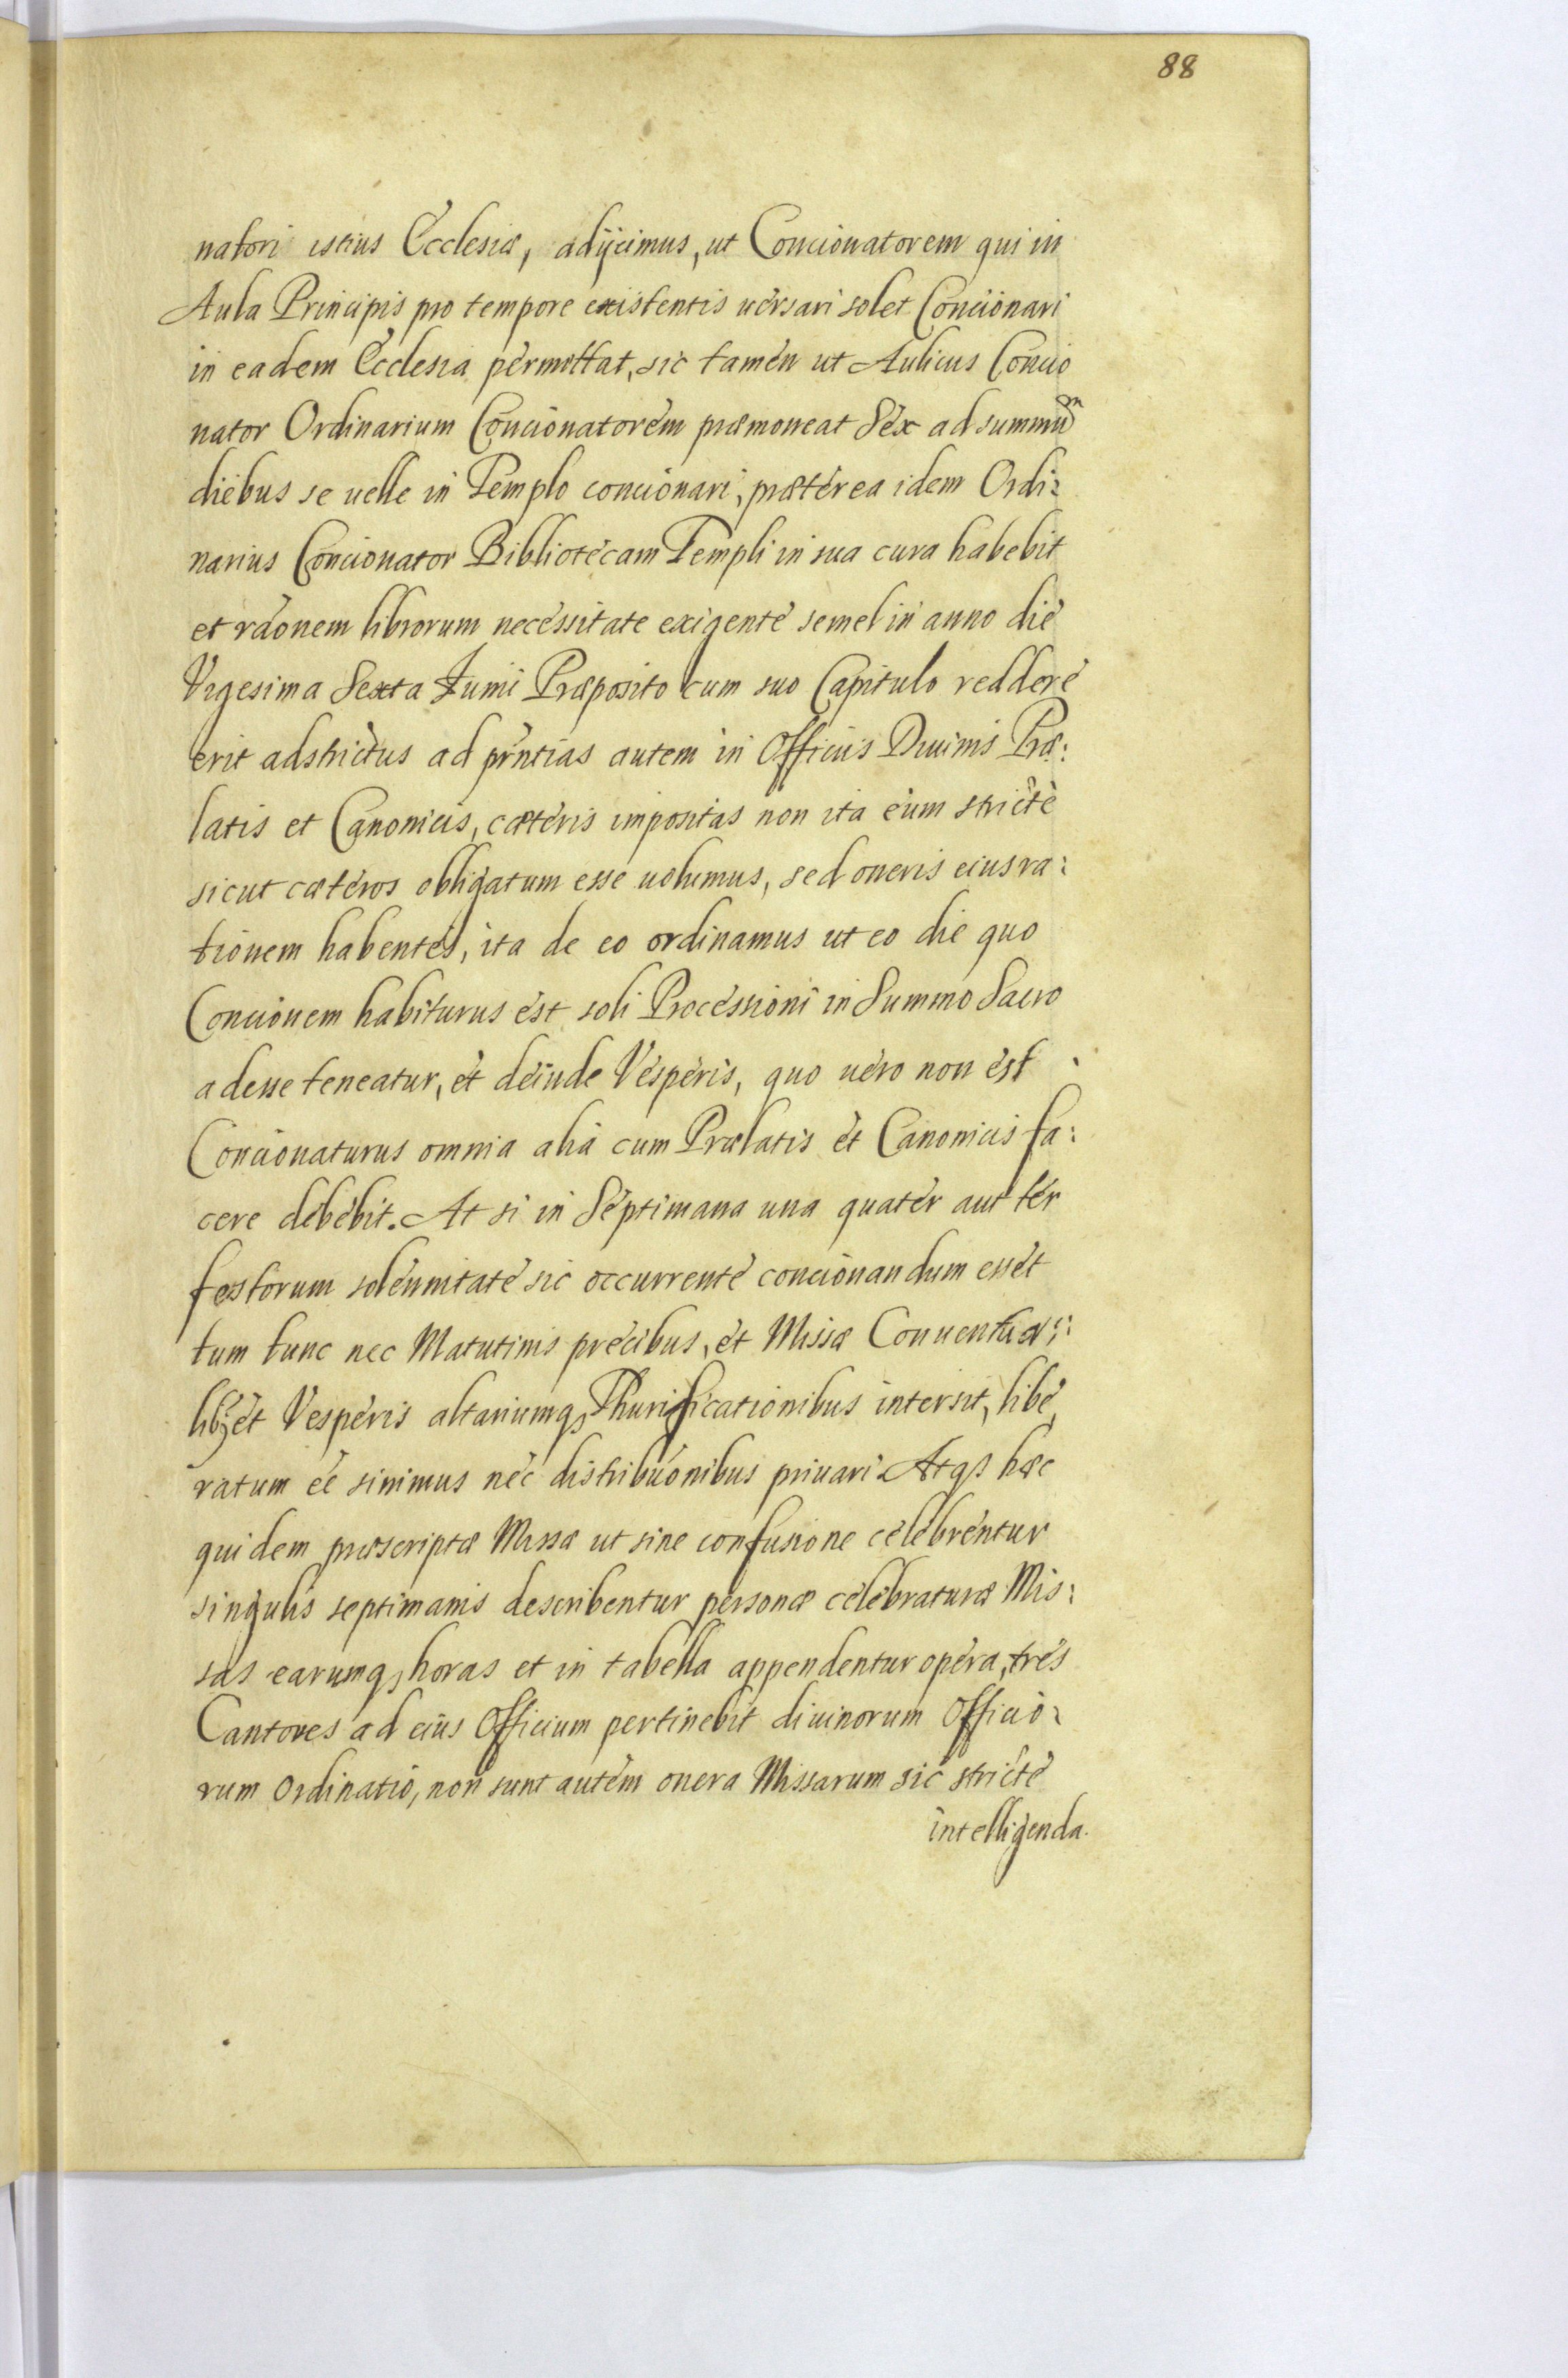 88
natori istius Ecclesiæ, adijcimus, ut Concionatorem qui in
Aula Principis pro tempore existentis uersari solet Concionari
in eadem Ecclesia permittat, sic tamen ut Aulicus Concio
nator Ordinarium Concionatorem præmoneat Sex ad summũm
diebus se uelle in Templo concionari, præterea idem Ordi:
narius Concionator Bibliotecam Templi in sua cura habebit
et rãonem librorum necessitate exigente semel in anno die
Vigesima Sexta Iunii Præposito cum suo Capitulo reddere
erit adstrictus ad prñtias autem in Officiis Diuinis Præ:
latis et Canonicis, cæteris impositas non ita eum stricte
sicut cæteros obligatum esse uolumus, sed oneris eius ra:
tionem habentes, ita de eo ordinamus ut eo die quo
Concionem habiturus est soli Processioni in Summo Sacro
adesse teneatur, et deinde Vesperis, quo uero non est
Concionaturus omnia alia cum Prælatis et Canonicis fa:
cere debebit. At si in Septimana una quater aut ter
festorum solennitate sic occurrente concionandum esset
tum tunc nec Matutinis precibus, et Missæ Conuentua::
libꝫ et Vesperis altariumqꝫ Thurificationibus intersit, libe,
ratum eẽ sinimus nec distribuõnibus priuari Atqꝫ hæc
quidem præscriptæ Missæ ut sine confusione celebrentur
singulis septimanis describentur personæ celebraturæ Mis:
sas earumqꝫ horas et in tabella appendentur opera, tres
Cantores ad eius Officium pertinebit diuinorum Officio:
rum Ordinatio, non sunt autem onera Missarum sic stricte
intelligenda.